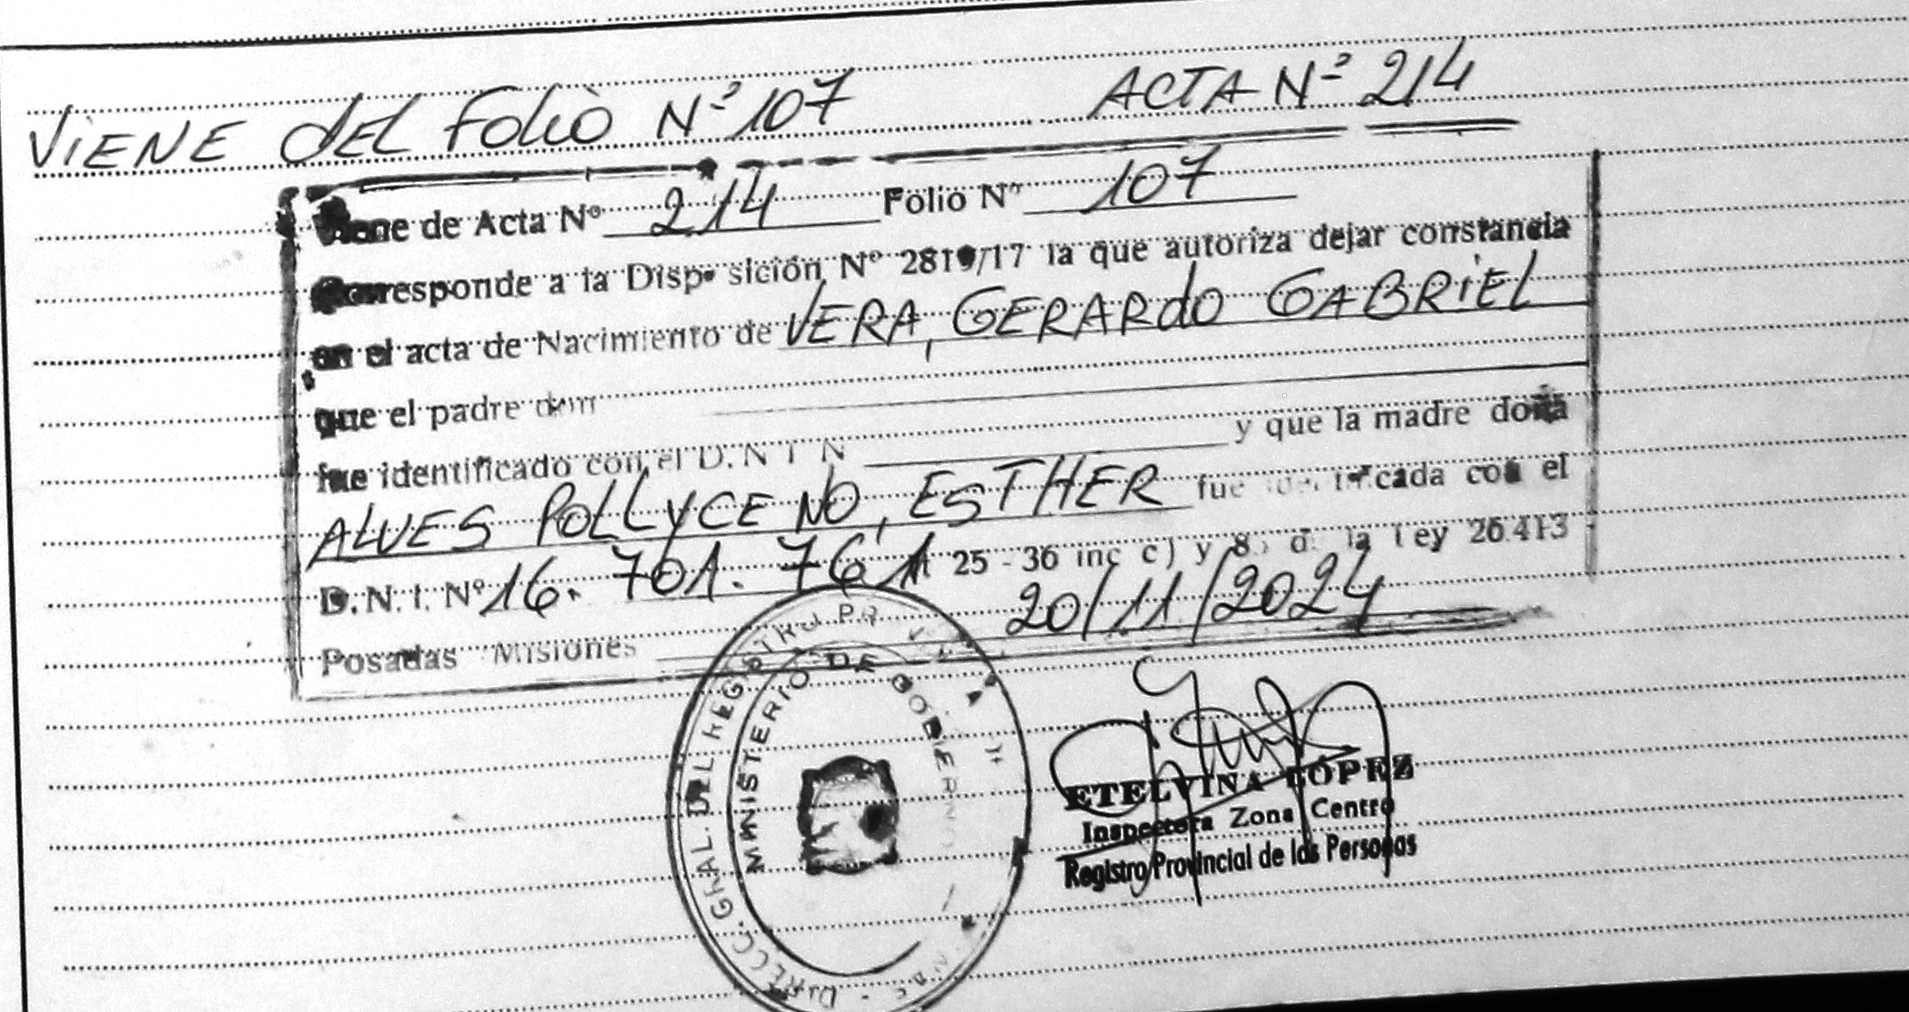 VIENE DEL FOLIO Nº 107 ACTA Nº 214
Viene de Acta Nº 214 Folio Nº 107
Corresponde a la Disposición Nº 2819/17 la que autoriza dejar constancia
en el acta de Nacimiento de VERA, GERARDO GABRIEL
que el padre don
fue identificado con el D.N.I. N y que la madre doña
ALVES POLLYCENO, ESTHER fue identificada con el
D.N.I. Nº 16.701.761 25 - 36 inc c) y 8 d la Ley 26.413
Posadas Misiones 20/11/2024
DIRECC. GRAL. DEL REGISTRO
MINISTERIO DE GOBIERNO
ETELVINA LOPEZ
Inspectora Zona Centro
Registro Provincial de las Personas